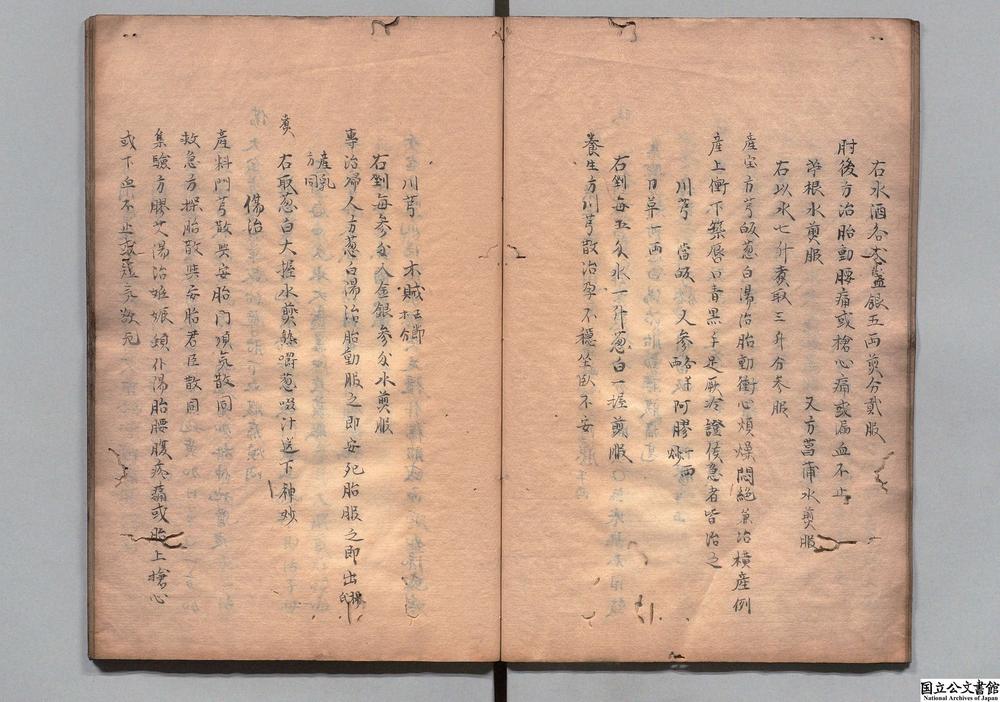 右水酒各大盞銀五両煎分貮服
肘後方治胎動腰痛或搶心痛或漏血不止
苧根水煎服 又方菖蒲水煎服
右以水七升煮取三升分叁服
産宝方芎皈葱白湯治胎動衝心煩燥悶絶兼治横産例
産上衝下築唇口青黒手足厥冷證候急者皆治之
川芎 當皈 人参 阿膠炒
甘草
右剉每五匁水一升葱白一握煎服
養生方川芎散治孕不穏坐臥不安
川芎 木賊
右剉每参匁入金銀参匁水煎服
專治婦人方葱白湯治胎動服之即安死胎服之即出
産乳方同
右取葱白大握水煎熱嚼葱啜汁送下神妙
傷治
産科門芎散與安胎門順気散同
救急方探胎散與安胎君臣散同
集驗方膠艾湯治姙娠顛仆傷胎腰腹疼痛或胎上搶心
或下血不止或
国立公文書館
National Archives of Japan